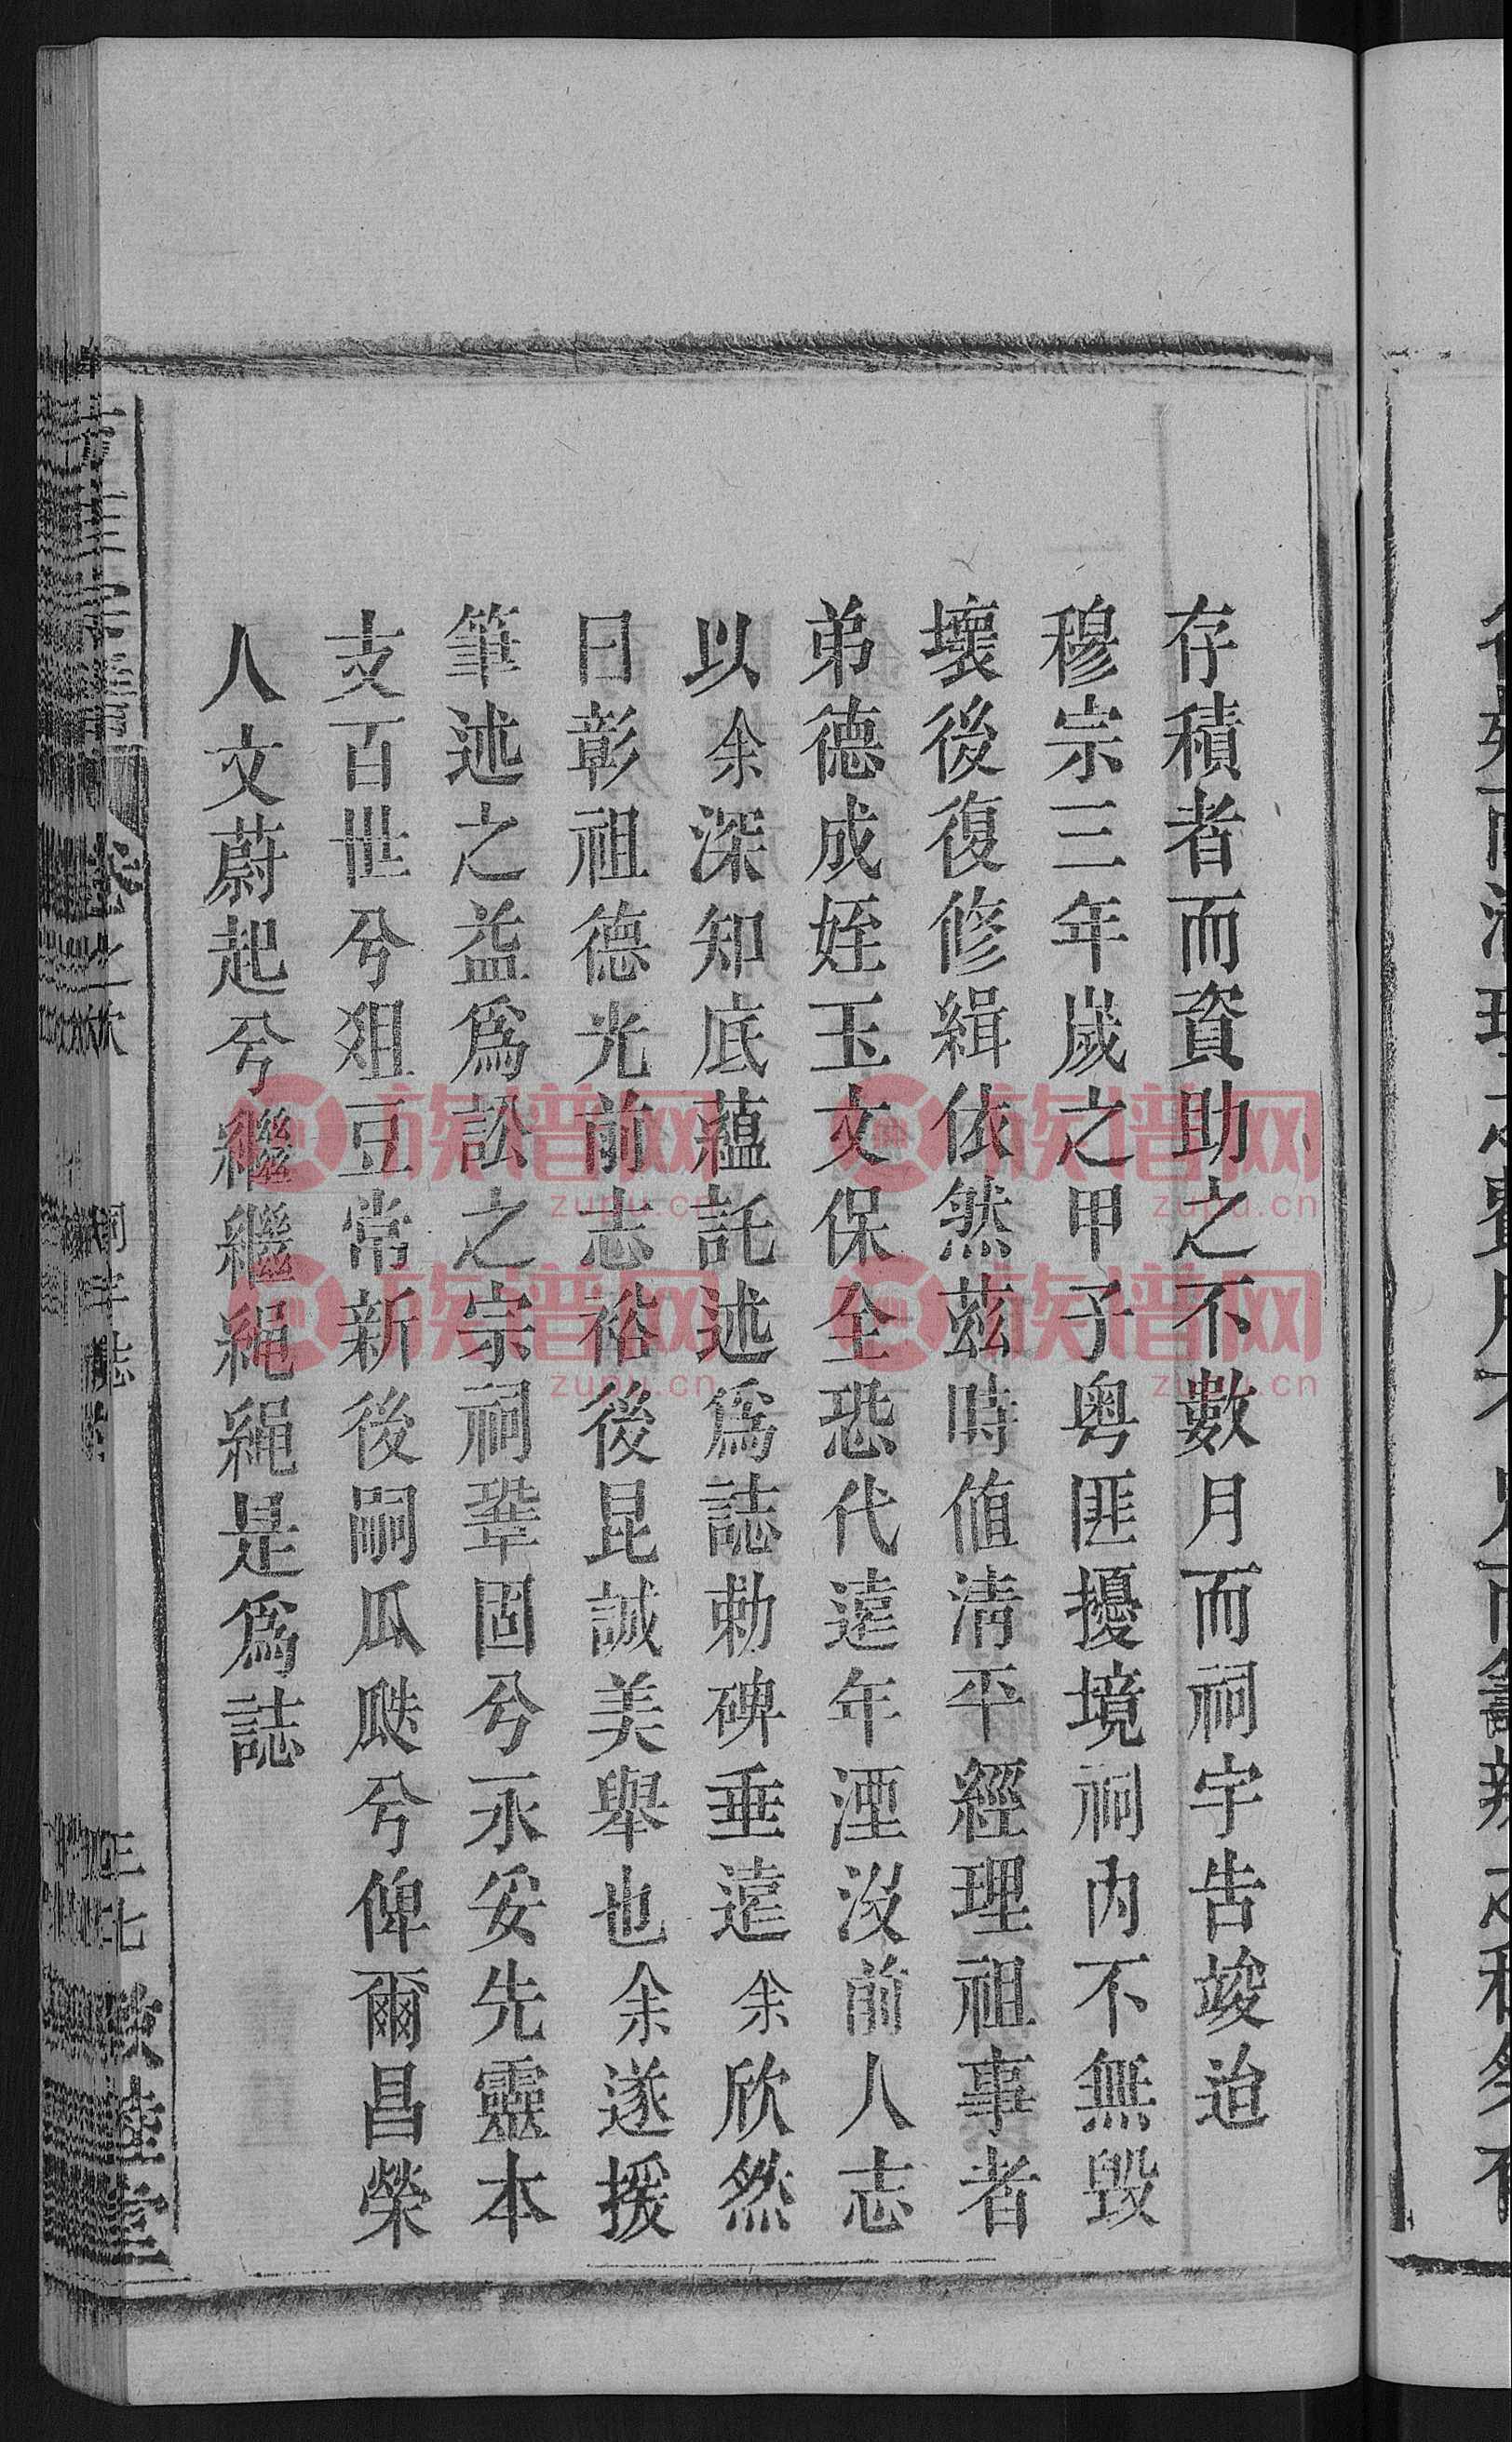 存積者而資助之不數月而祠宇告竣迨
穆宗三年歲之甲子粤匪擾境祠內不無毀
壞後復修緝依然茲時值清平經理祖事者
弟德成姪玉文保全恐代遠年湮沒前人志
以余深知底蘊託述爲誌勒碑垂遠余欣然
曰彰祖德光前志裕後昆誠美舉也余遂援
筆述之益爲訟之宗祠鞏固兮永妥先靈本
支百世兮俎豆常新後嗣瓜瓞兮俾爾昌榮
人文蔚起兮繼繼繩繩是爲誌
卷之
三七
族谱网
zupu.cn
族谱网
zupu.cn
族谱网
zupu.cn
族谱网
zupu.cn